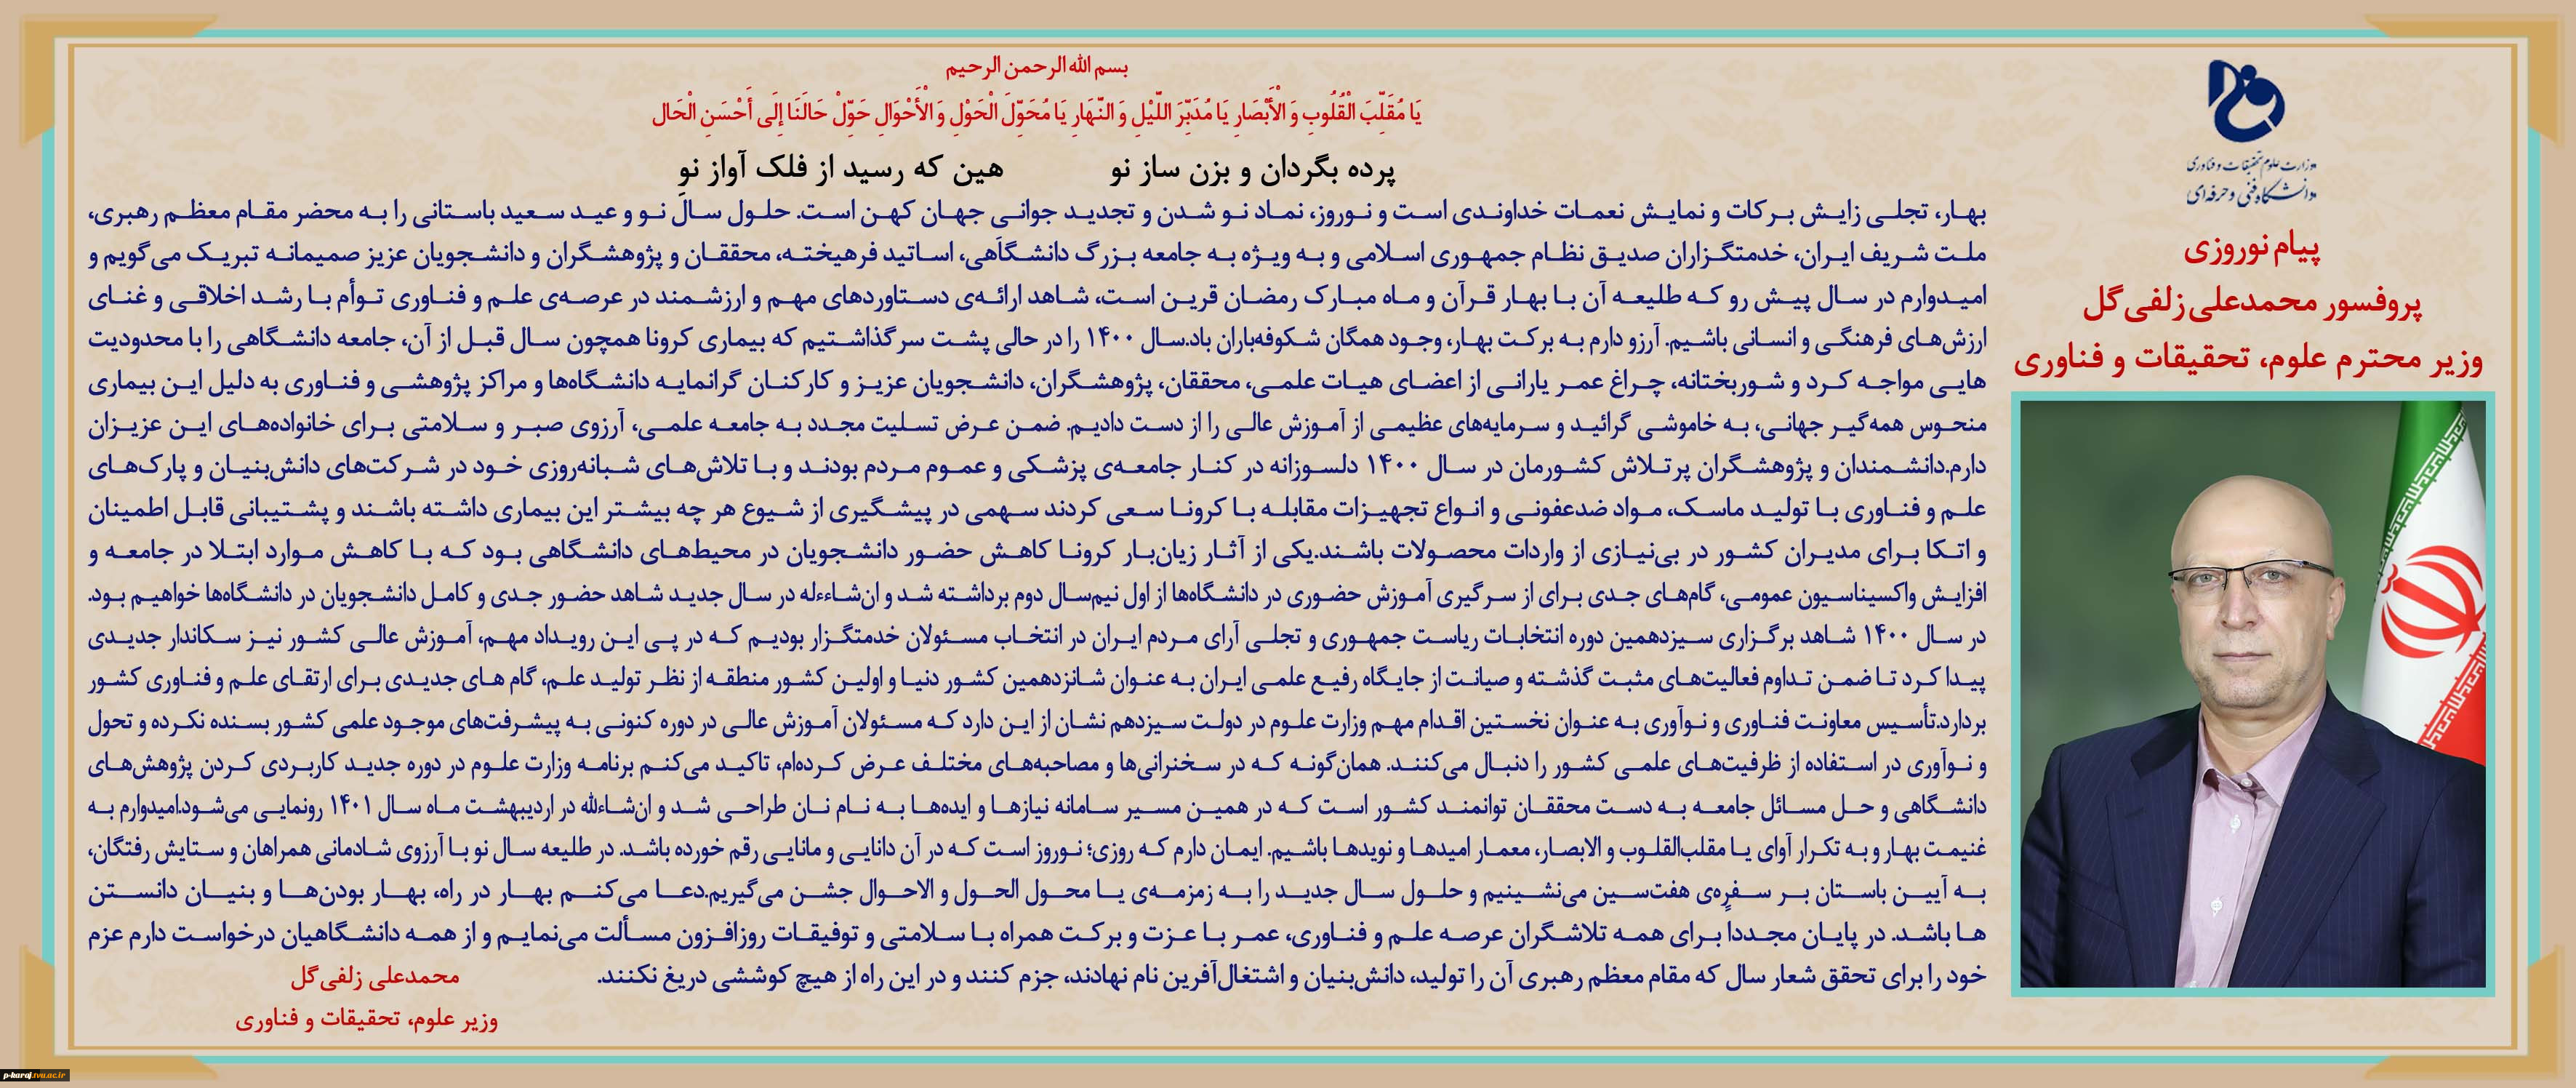 وزارت علوم تحقیقات و فناوری
دانشگاه فنی و حرفه‌ای
پیام نوروزی
پروفسور محمدعلی زلفی‌گل
وزیر محترم علوم، تحقیقات و فناوری
بسم الله الرحمن الرحیم
يَا مُقَلِّبَ الْقُلُوبِ وَ الْأَبْصَارِ يَا مُدَبِّرَ اللَّيْلِ وَ النَّهَارِ يَا مُحَوِّلَ الْحَوْلِ وَ الْأَحْوَالِ حَوِّلْ حَالَنَا إِلَى أَحْسَنِ الْحَال
پرده بگردان و بزن ساز نو هین که رسید از فلک آواز نو
بهار، تجلی زایش برکات و نمایش نعمات خداوندی است و نوروز، نماد نو شدن و تجدید جوانی جهان کهن است. حلول سال نو و عید سعید باستانی را به محضر مقام معظم رهبری،
ملت شریف ایران، خدمتگزاران صدیق نظام جمهوری اسلامی و به ویژه به جامعه بزرگ دانشگاهی، اساتید فرهیخته، محققان و پژوهشگران و دانشجویان عزیز صمیمانه تبریک می‌گویم و
امیدوارم در سال پیش رو که طلیعه آن با بهار قرآن و ماه مبارک رمضان قرین است، شاهد ارائه‌ی دستاوردهای مهم و ارزشمند در عرصه‌ی علم و فناوری توأم با رشد اخلاقی و غنای
ارزش‌های فرهنگی و انسانی باشیم. آرزو دارم به برکت بهار، وجود همگان شکوفه‌باران باد.سال ۱۴۰۰ را در حالی پشت سر گذاشتیم که بیماری کرونا همچون سال قبل از آن، جامعه دانشگاهی را با محدودیت
هایی مواجه کرد و شوربختانه، چراغ عمر یارانی از اعضای هیات علمی، محققان، پژوهشگران، دانشجویان عزیز و کارکنان گرانمایه دانشگاه‌ها و مراکز پژوهشی و فناوری به دلیل این بیماری
منحوس همه‌گیر جهانی، به خاموشی گرائید و سرمایه‌های عظیمی از آموزش عالی را از دست دادیم. ضمن عرض تسلیت مجدد به جامعه علمی، آرزوی صبر و سلامتی برای خانواده‌های این عزیزان
دارم.دانشمندان و پژوهشگران پرتلاش کشورمان در سال ۱۴۰۰ دلسوزانه در کنار جامعه‌ی پزشکی و عموم مردم بودند و با تلاش‌های شبانه‌روزی خود در شرکت‌های دانش‌بنیان و پارک‌های
علم و فناوری با تولید ماسک، مواد ضدعفونی و انواع تجهیزات مقابله با کرونا سعی کردند سهمی در پیشگیری از شیوع هر چه بیشتر این بیماری داشته باشند و پشتیبانی قابل اطمینان
و اتکا برای مدیران کشور در بی‌نیازی از واردات محصولات باشند.یکی از آثار زیان‌بار کرونا کاهش حضور دانشجویان در محیط‌های دانشگاهی بود که با کاهش موارد ابتلا در جامعه و
افزایش واکسیناسیون عمومی، گام‌های جدی برای از سرگیری آموزش حضوری در دانشگاه‌ها از اول نیم‌سال دوم برداشته شد و ان‌شاءءله در سال جدید شاهد حضور جدی و کامل دانشجویان در دانشگاه‌ها خواهیم بود.
در سال ۱۴۰۰ شاهد برگزاری سیزدهمین دوره انتخابات ریاست جمهوری و تجلی آرای مردم ایران در انتخاب مسئولان خدمتگزار بودیم که در پی این رویداد مهم، آموزش عالی کشور نیز سکاندار جدیدی
پیدا کرد تا ضمن تداوم فعالیت‌های مثبت گذشته و صیانت از جایگاه رفیع علمی ایران به عنوان شانزدهمین کشور دنیا و اولین کشور منطقه از نظر تولید علم، گام های جدیدی برای ارتقای علم و فناوری کشور
بردارد.تأسیس معاونت فناوری و نوآوری به عنوان نخستین اقدام مهم وزارت علوم در دولت سیزدهم نشان از این دارد که مسئولان آموزش عالی در دوره کنونی به پیشرفت‌های موجود علمی کشور بسنده نکرده و تحول
و نوآوری در استفاده از ظرفیت‌های علمی کشور را دنبال می‌کنند. همان‌گونه که در سخنرانی‌ها و مصاحبه‌های مختلف عرض کرده‌ام، تاکید می‌کنم برنامه وزارت علوم در دوره جدید کاربردی کردن پژوهش‌های
دانشگاهی و حل مسائل جامعه به دست محققان توانمند کشور است که در همین مسیر سامانه نیازها و ایده‌ها به نام نان طراحی شد و ان‌شاءلله در اردیبهشت ماه سال ۱۴۰۱ رونمایی می‌شود.امیدوارم به
غنیمت بهار و به تکرار آوای یا مقلب‌القلوب و الابصار، معمار امیدها و نویدها باشیم. ایمان دارم که روزی؛ نوروز است که در آن دانایی و مانایی رقم خورده باشد. در طلیعه سال نو با آرزوی شادمانی همراهان و ستایش رفتگان،
به آیین باستان بر سفره‌ی هفت‌سین می‌نشینیم و حلول سال جدید را به زمزمه‌ی یا محول الحول و الاحوال جشن می‌گیریم.دعا می‌کنم بهار در راه، بهار بودن‌ها و بنیان دانستن
ها باشد. در پایان مجددا برای همه تلاشگران عرصه علم و فناوری، عمر با عزت و برکت همراه با سلامتی و توفیقات روزافزون مسألت می‌نمایم و از همه دانشگاهیان درخواست دارم عزم
خود را برای تحقق شعار سال که مقام معظم رهبری آن را تولید، دانش‌بنیان و اشتغال‌آفرین نام نهادند، جزم کنند و در این راه از هیچ کوششی دریغ نکنند.
محمدعلی زلفی‌گل
وزیر علوم، تحقیقات و فناوری
p-karaj.tvu.ac.ir